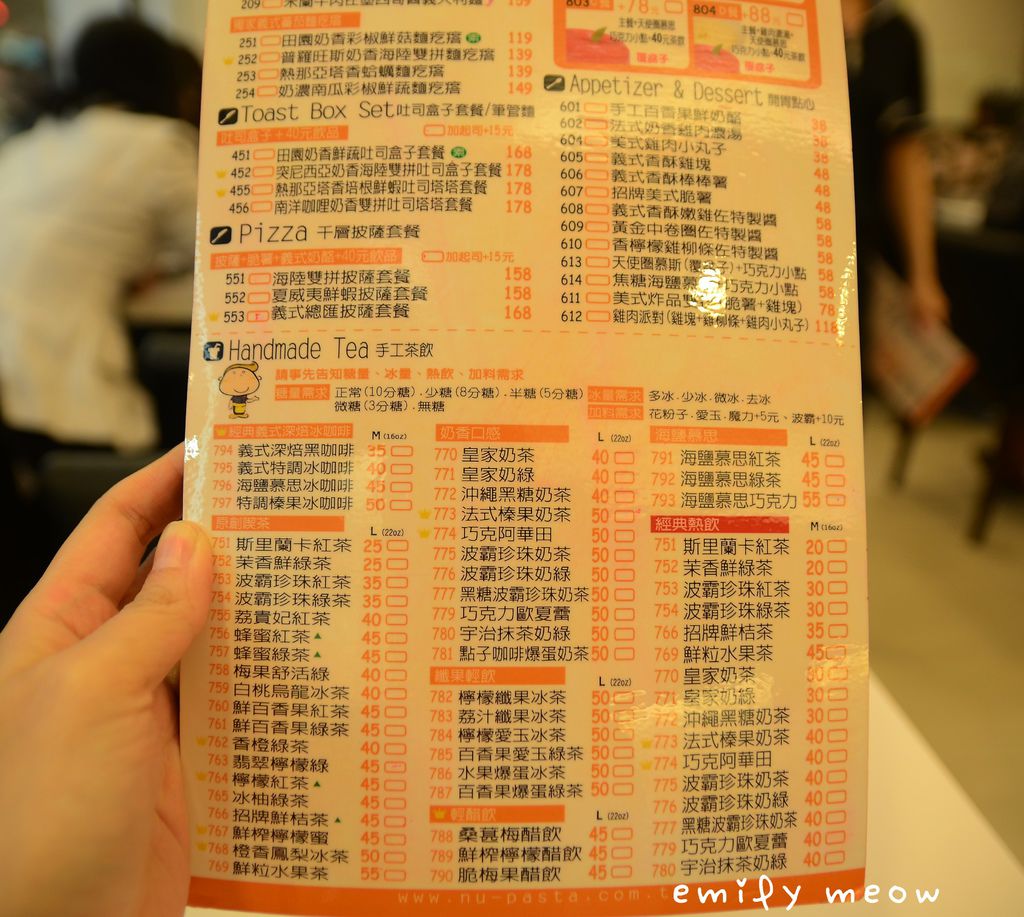 209 米蘭牛肉
159
251 田園奶香彩椒鮮菇麵疙瘩 素 119
252 普羅旺斯奶香海陸雙拼麵疙瘩 139
253 熱那亞塔香蛤蠣麵疙瘩 139
254 奶濃南瓜彩椒鮮蔬麵疙瘩 149
Toast Box Set 吐司盒子套餐/筆管麵
吐司盒子+40元飲品 加起司+15元
451 田園奶香鮮蔬吐司盒子套餐 素 168
452 突尼西亞奶香海陸雙拼吐司盒子套餐 178
455 熱那亞塔香培根鮮蝦吐司塔塔套餐 178
456 南洋咖哩奶香雙拼吐司塔塔套餐 178
Pizza 千層披薩套餐
披薩+脆薯+義式奶酪+40元飲品 加起司+15元
551 海陸雙拼披薩套餐 158
552 夏威夷鮮蝦披薩套餐 158
553 義式總匯披薩套餐 168
803 +78元
主餐+天使圈慕思
巧克力小點+40元茶飲
覆盒子
804 +88元
巧克力小點+40元茶飲
Appetizer & Dessert 開胃點心
601 手工百香果鮮奶酪 38
602 法式奶香雞肉濃湯 38
604 美式雞肉小丸子 38
605 義式香酥雞塊 48
606 義式香酥棒棒薯 48
607 招牌美式脆薯 48
608 義式香酥嫩雞佐特製醬 58
609 黃金中卷圈佐特製醬 58
610 香檸檬雞柳條佐特製醬 58
613 天使圈慕斯(覆盆子)+巧克力小點 58
614 焦糖海鹽慕 巧克力小點 58
611 美式炸品雙 脆薯+雞塊) 78
612 雞肉派對(雞塊+雞柳條+雞肉小丸子) 118
Handmade Tea 手工茶飲
請事先告知糖量、冰量、熱飲、加料需求
糖量需求 正常(10分糖).少糖(8分糖).半糖(5分糖)
微糖(3分糖).無糖
冰量需求 多冰.少冰.微冰.去冰
加料需求 花粉子.愛玉.魔力+5元、波霸+10元
經典義式深焙冰咖啡 M (16oz)
794 義式深焙黑咖啡 35
795 義式特調冰咖啡 40
796 海鹽慕思冰咖啡 45
797 特調榛果冰咖啡 50
原創喫茶 L (22oz)
751 斯里蘭卡紅茶 25
752 茉香鮮綠茶 25
753 波霸珍珠紅茶 35
754 波霸珍珠綠茶 35
755 荔貴妃紅茶 40
756 蜂蜜紅茶▲ 45
757 蜂蜜綠茶▲ 45
758 梅果舒活綠 40
759 白桃烏龍冰茶 40
760 鮮百香果紅茶 45
761 鮮百香果綠茶 45
762 香橙綠茶 40
763 翡翠檸檬綠 40
764 檸檬紅茶▲ 45
765 冰柚綠茶 45
766 招牌鮮桔茶▲ 45
767 鮮榨檸檬蜜 45
768 橙香鳳梨冰茶 50
769 鮮粒水果茶 55
奶香口感 L (22oz)
770 皇家奶茶 40
771 皇家奶綠 40
772 沖繩黑糖奶茶 40
773 法式榛果奶茶 50
774 巧克阿華田 50
775 波霸珍珠奶茶 50
776 波霸珍珠奶綠 50
777 黑糖波霸珍珠奶茶 50
779 巧克力歐夏蕾 50
780 宇治抹茶奶綠 50
781 點子咖啡爆蛋奶茶 50
纖果輕飲 L (22oz)
782 檸檬纖果冰茶 50
783 荔汁纖果冰茶 50
784 檸檬愛玉冰茶 50
785 百香果愛玉綠茶 50
786 水果爆蛋冰茶 50
787 百香果爆蛋綠茶 50
輕醋飲 L (22oz)
788 桑葚梅醋飲 45
789 鮮榨檸檬醋飲 45
790 脆梅果醋飲 45
海鹽慕思 L (22oz)
791 海鹽慕思紅茶 45
792 海鹽慕思綠茶 45
793 海鹽慕思巧克力 55
經典熱飲 M (16oz)
751 斯里蘭卡紅茶 20
752 茉香鮮綠茶 20
753 波霸珍珠紅茶 30
754 波霸珍珠綠茶 30
766 招牌鮮桔茶 35
769 鮮粒水果茶 45
770 皇家奶茶 30
771 皇家奶綠 30
772 沖繩黑糖奶茶 30
773 法式榛果奶茶 40
774 巧克阿華田 40
775 波霸珍珠奶茶 40
776 波霸珍珠奶綠 40
777 黑糖波霸珍珠奶茶 40
779 巧克力歐夏蕾 40
780 宇治抹茶奶綠 40
www.nu-pasta.com.t
emify meow